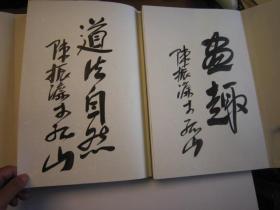 畫趣
陳振濂于孤山
道法自然
陳振濂于孤山